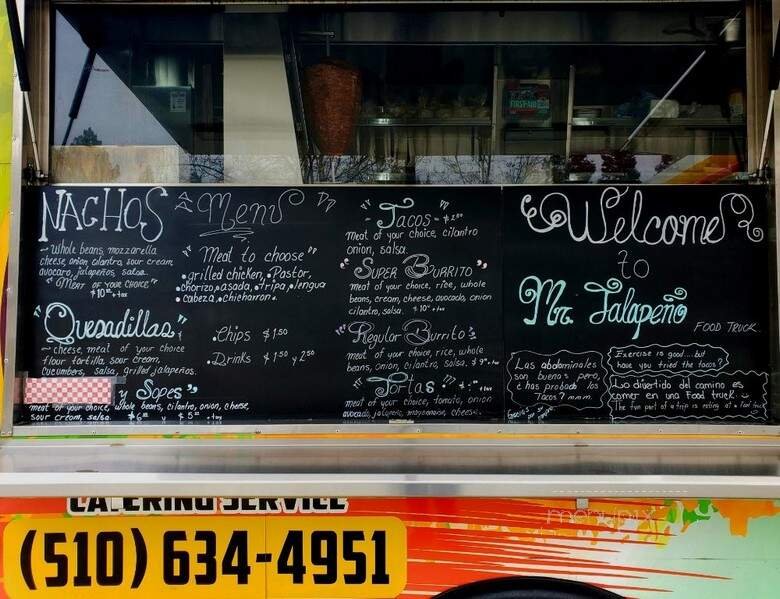 FIRST AID
NACHOS
~ Whole beans, mozzarella
cheese, onion cilantro, sour cream
avocaro, jalapeños, salsa.
"MEAT OF YOUR CHOICE"
$10.00 + tax
"Quesadillas"
~ cheese, meat of your choice
flour tortilla, sour cream,
Cucumbers, salsa, grilled jalapeños.
y Sopes"
meat of your choice, whole beans, cilantro, onion, cheese,
sour cream, salsa.
Menú
"Meat to choose"
• grilled chicken, • Pastor,
chorizo, • asada, • tripa, • lengua
• cabeza, • chicharon.
• Chips $1.50
• Drinks $1.50 y 2.50
"Tacos = $2.00
meat of your choice, cilantro
onion, salsa.
"SUPER BURRITO"
meat of your choice, rice, whole
beans, cream, cheese, avocado, onion
cilantro, salsa.
"Regular Burrito"
meat of your choice, rice, whole
beans, onion, cilantro, salsa.
"Tortas"
meat of your choice, tomato, onion
avocado, jalapeño, mayonnaise, cheese.
Welcome
to
Mr. Jalapeño
FOOD TRUCK
Las abdominales
son buenos pero,
¿has probado los
Tacos? mmm.
Exercise is good....but
have you tried the tacos?
Lo divertido del camino es
comer en una food truck
The fun part of a trip is eating at a food truck
CATERING SERVICE
menupix
(510) 634-4951